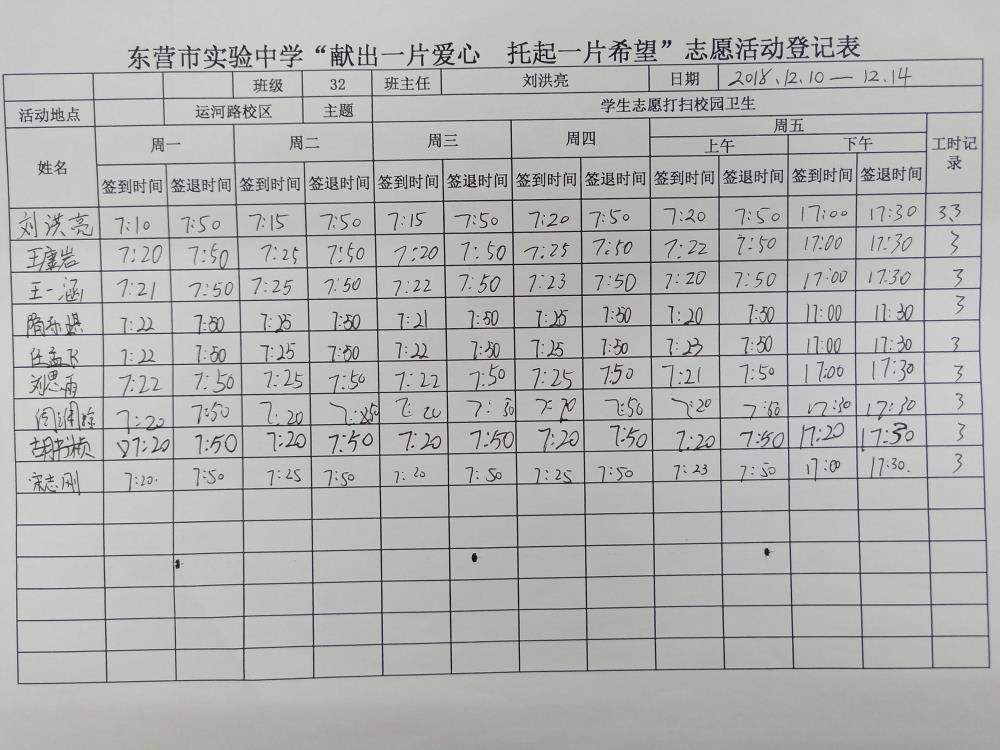 东营市实验中学“献出一片爱心 托起一片希望”志愿活动登记表
班级 32 班主任 刘洪亮 日期 2018.12.10—12.14
活动地点 运河路校区 主题 学生志愿打扫校园卫生
姓名 周一 周二 周三 周四 周五 工时记录
上午 下午
签到时间 签退时间 签到时间 签退时间 签到时间 签退时间 签到时间 签退时间 签到时间 签退时间 签到时间 签退时间
刘洪亮 7:10 7:50 7:15 7:50 7:15 7:50 7:20 7:50 7:20 7:50 17:00 17:30 33
王虔岩 7:20 7:50 7:25 7:50 7:20 7:50 7:25 7:50 7:22 7:50 17:00 17:30 3
王一涵 7:21 7:50 7:25 7:50 7:22 7:50 7:23 7:50 7:20 7:50 17:00 17:30 3
7:22 7:50 7:25 7:50 7:21 7:50 7:25 7:50 7:20 7:50 17:00 17:30 3
任孟飞 7:22 7:50 7:25 7:50 7:22 7:50 7:25 7:50 7:23 7:50 17:00 17:30 3
刘思雨 7:22 7:50 7:25 7:50 7:22 7:50 7:25 7:50 7:21 7:50 17:00 17:30 3
7:20 7:50 7:20 7:20 7:50 7:50 7:20 7:50 17:30 17:30 3
7:20 7:50 7:20 7:50 7:20 7:50 7:20 7:50 7:20 7:50 17:20 17:30 3
宋志刚 7:20. 7:50 7:25 7:50 7:20 7:50 7:25 7:50 7:23 7:50 17:00 17:30. 3